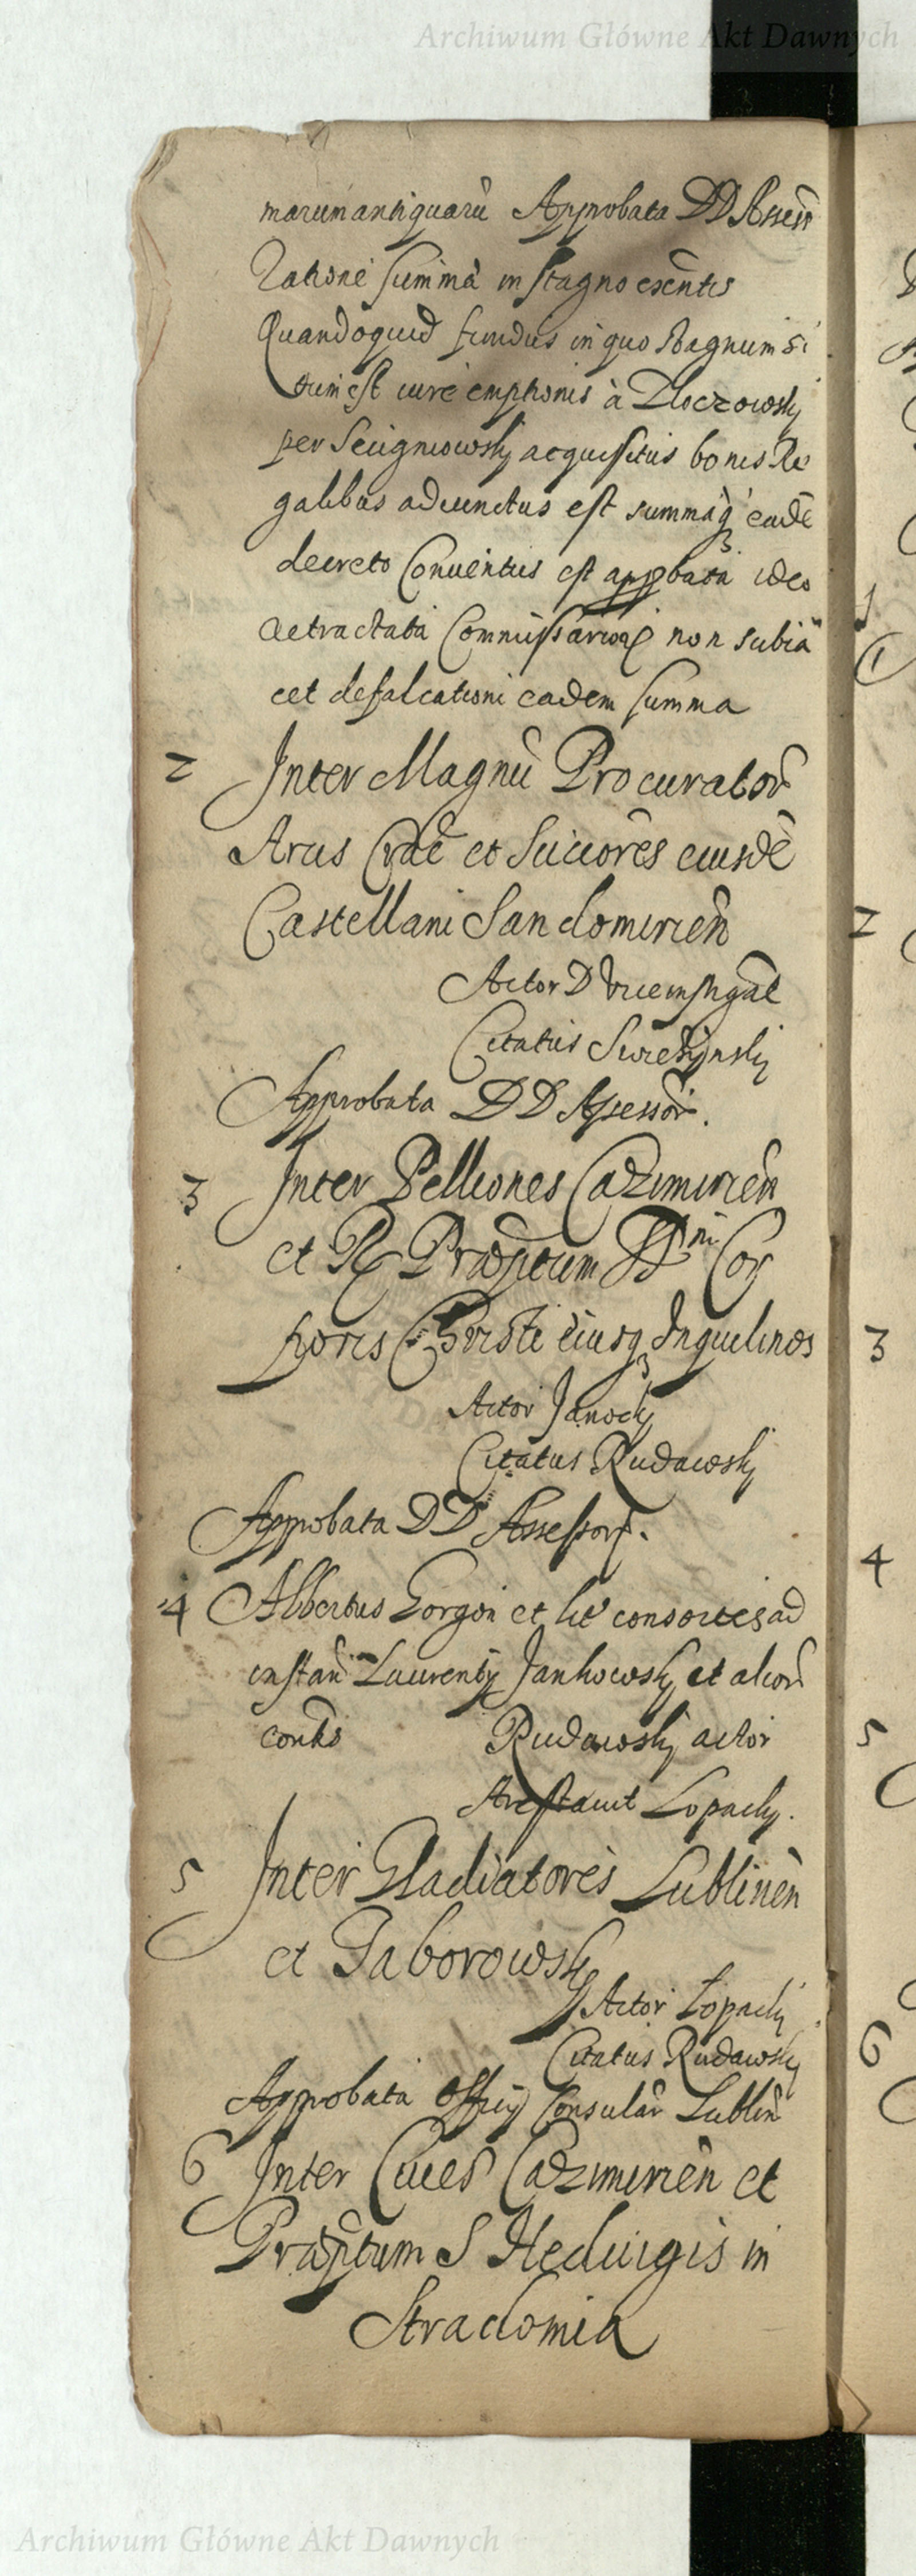 Archiwum Główne Akt Dawnych
marum antiquarũ Approbata DD Assess
Ratione summa in stagno exẽntis
Quandoquid fundus in quo stagnum si
tum est iure emptionis à Zloczowsky
per Seugniowskj acquisitus bonis Re
galibus adiunctus est summaq eadẽ
decreto Conuentus est approbata ideo
retractata Commissariorũ non subia
cet defalcationi eadem summa
2 Inter Magnũ Procuratorẽ
Arcis Crac̃ et Sutores eiusdẽ
Castellani Sandomiriẽn
Actor D
Citatus
Approbata DD Assessor̃.
3 Inter Pelliones Cazimiriẽn
et R Præptum SSmi Cor
poris Christi eiusq Inquilinos
Actor Janocky
Citatus Rudawskj
Approbata DD Assessorũ.
4 Albertus Gorgon et lit̃ consortes ad
instañ Laurentij Jankowsky et alior̃
Rudawskj actor
Arestauit Lopacky.
5 Inter Gladiatores Lubliñen
et Gaborowsky
Actor Lopacky
Citatus Rudawsky
Approbata Officij Consular̃ Lubliñ
6 Inter Ciues Cazimiriẽn et
Præp̃tum S Hedwigis in
Stradomia
1
2
3
4
5
6
Archiwum Główne Akt Dawnych